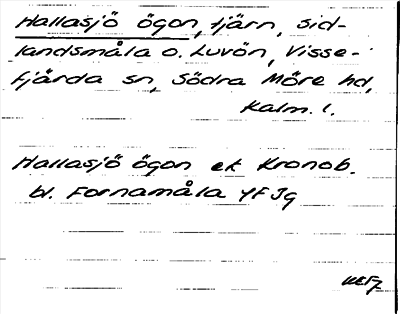 Hallasjö ögon, tjärn, Sid-
landsmåla o. Luvön, Visse-
fjärda sn, Södra Möre hd,
Kalm. l.
Hallasjö ögon ek Kronob.
bl. Fornamåla YFJg